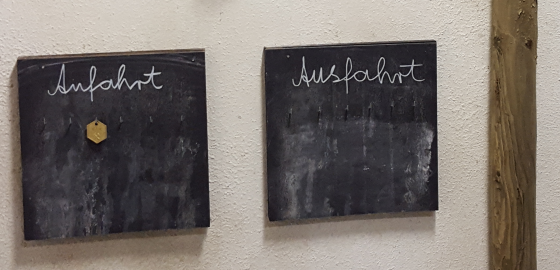 Anfahrt
Ausfahrt